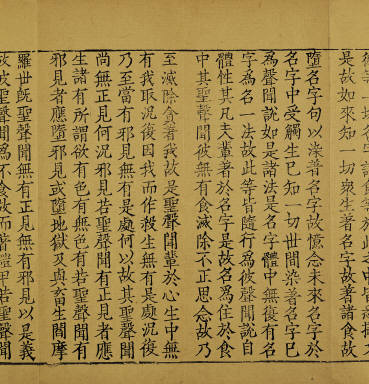 是故如來知一切衆生著名字故著諸食故
墮名字句以染著名字故懷念未來名字於
名字中受觸生已知一切世間染著名字已
爲聲聞說如是諸法是名字體中無復有名
字爲名一法故此等皆隨行爲彼聲聞說自
體性其凡夫輩著於名字是故名爲住於食
中其聖聲聞彼無有食滅除不正思念故乃
至滅除貪著我故是聖聲聞輩於心生中無
有我取況復因我而作殺生無有是處況復
乃至當有邪見無有是處何以故其聖聲聞
尚無正見何況邪見若聖聲聞有正見者應
生諸有所謂欲有色有無色有若聖聲聞有
邪見者應墮邪見或墮地獄及與畜生閻摩
羅世旣聖聲聞無有正見無有邪見以是義
故彼聖聲聞爲不食故而鎧甲若聖聲聞